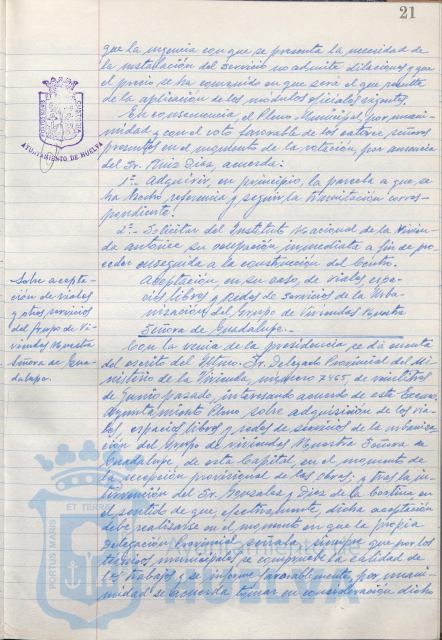 21
que la urgencia con que se presenta la necesidad de
la instalación del servicio no admite dilaciones, y que
el precio se ha convenido en que será el que resulte
de la aplicación de los módulos oficiales vigentes;
En consecuencia, el Pleno Municipal, por unani-
midad y con el voto favorable de los catorce señores
presentes en el momento de la votación, por ausencia
del Sr. Ruiz Diaz, acuerda:
1º.- Adquirir, en principio, la parcela a que se
ha hecho referencia y seguir la tramitación corres-
pondiente.
2º.- Solicitar del Instituto Nacional de la Vivien-
da autorice su ocupación inmediata a fin de pro-
ceder enseguida a la construcción del Centro.
Aceptación, en su caso, de viales espa-
cios libres y Redes de Servicios de la Urba-
nización del Grupo de Viviendas Nuestra
Señora de Guadalupe.-
Con la venia de la presidencia, se dá cuenta
del escrito del Iltmo. Sr. Delegado Provincial del Mi-
nisterio de la Vivienda, número 7465, de veintitres
de Junio pasado, interesando acuerdo de este Excmo.
Ayuntamiento Pleno sobre adquisición de los via-
les, espacios libres y redes de servicios de la urbaniza-
ción del Grupo de viviendas Nuestra Señora de
Guadalupe de esta Capital, en el momento de
la recepción provisional de las obras; y tras la in-
tervención del Sr. González y Diaz de la Cortina en
el sentido de que, efectivamente, dicha aceptación
debe realizarse en el momento en que la propia
Delegación Provincial señala, siempre que por los
técnicos municipales se compruebe la calidad de
los trabajos y se informe favorablemente, por unani-
midad se acuerda tomar en consideración dicho
Sobre acepta-
ción de viales
y otros servicios
del Grupo de Vi-
viendas Nuestra
Señora de Gua-
dalupe.
AYUNTAMIENTO DE HUELVA
PORTUS MARIS
ET TERRAE
Ayuntamiento de
HUELVA